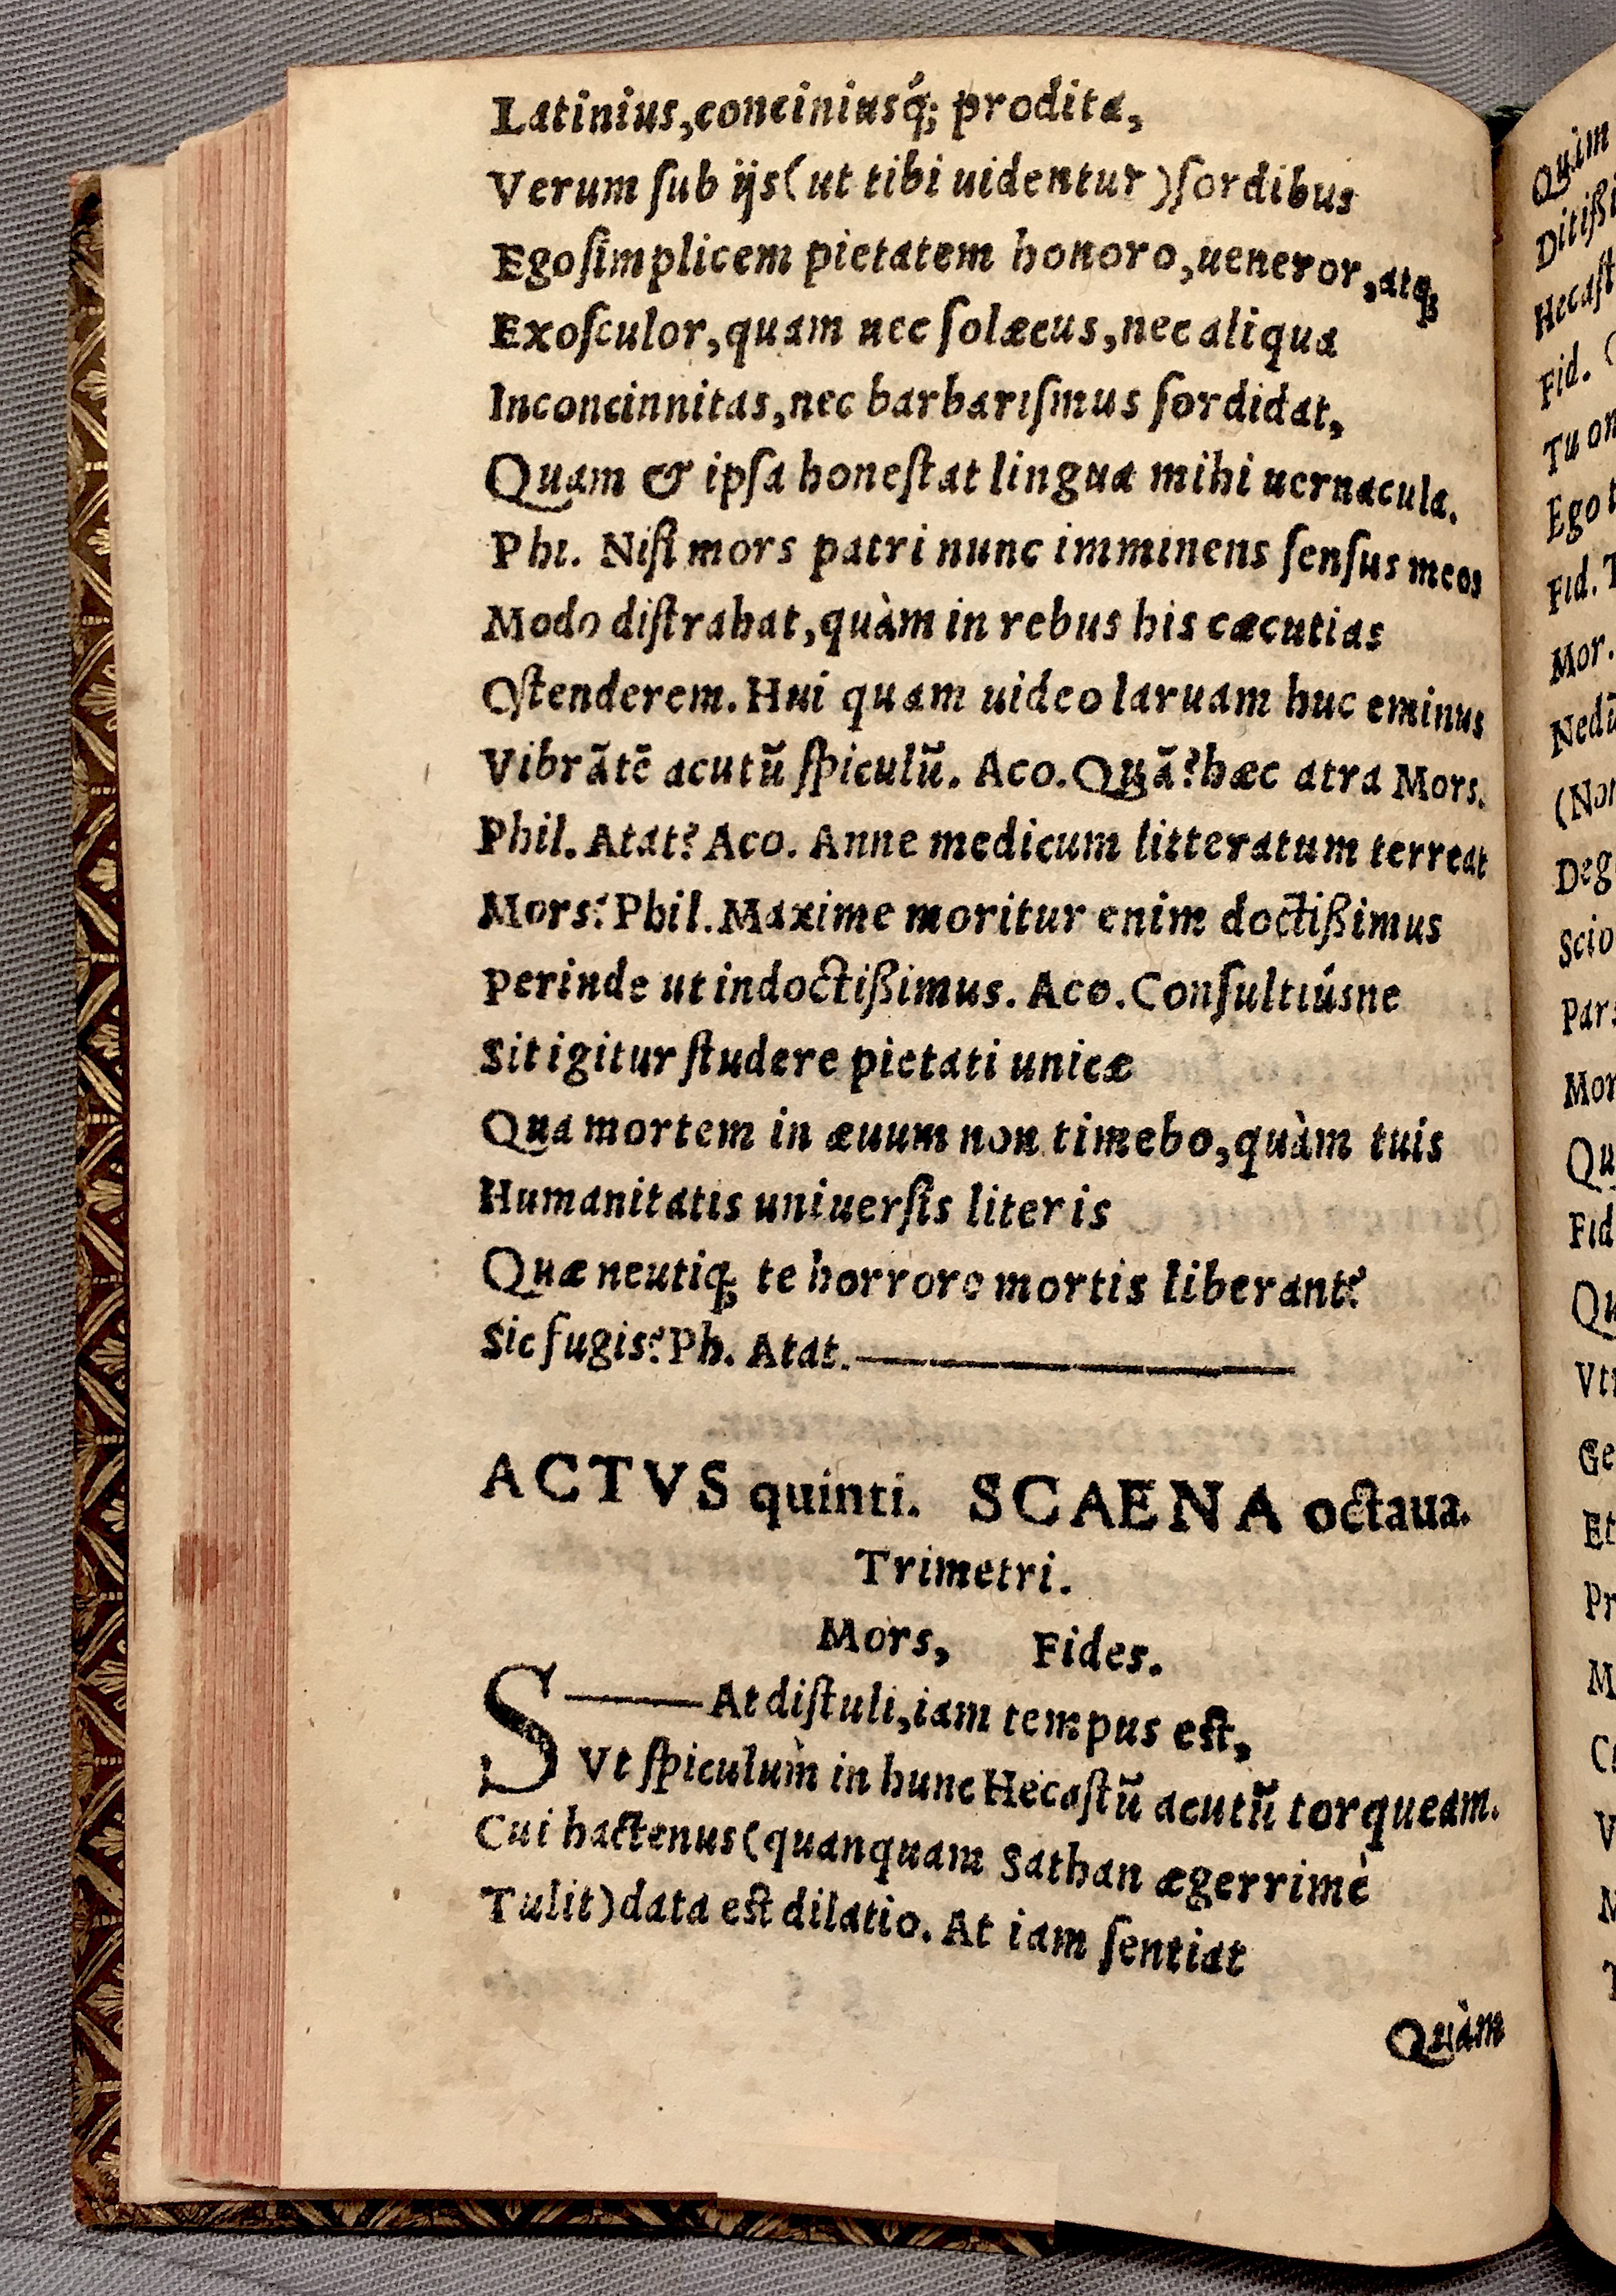 Latinius,conciniusq́; prodita,
Verum ſub ijs(ut tibi uidentur)ſordibus
Ego ſimplicem pietatem honoro,ueneror,atq;
Exoſculor,quam nec ſolæcus,nec aliqua
Inconcinnitas,nec barbariſmus ſordidat,
Quam & ipſa honeſtat lingua mihi uernacula.
Phi. Niſi mors patri nunc imminens ſenſus meos
Modo diſtrahat,quàm in rebus his cæcutias
Oſtenderem. Hui quam uideo laruam huc eminus
Vibrãtẽ acutũ ſpiculũ. Aco. Quã? hæc atra Mors.
Phil. Atat? Aco. Anne medicum litteratum terreat
Mors? Phil. Maxime moritur enim doctißimus
Perinde ut indoctißimus. Aco. Conſultiúsne
Sit igitur ſtudere pietati unicæ
Qua mortem in æuum non timebo,quàm tuis
Humanitatis uniuerſis literis
Quæ neutiq; te horrore mortis liberant?
Sic fugis? Ph. Atat.
ACTVS quinti. SCAENA octaua.
Trimetri.
Mors, Fides.
S—At diſtuli,iam tempus est,
Vt ſpiculum in hunc Hecaſtũ acutũ torqueam.
Cui hactenus(quanquam Sathan ægerrimè
Tulit)data est dilatio. At iam ſentiat
Quàm
Quàm
Hecaſt
Fid.
Ego
Fid.
Mor.
Scio